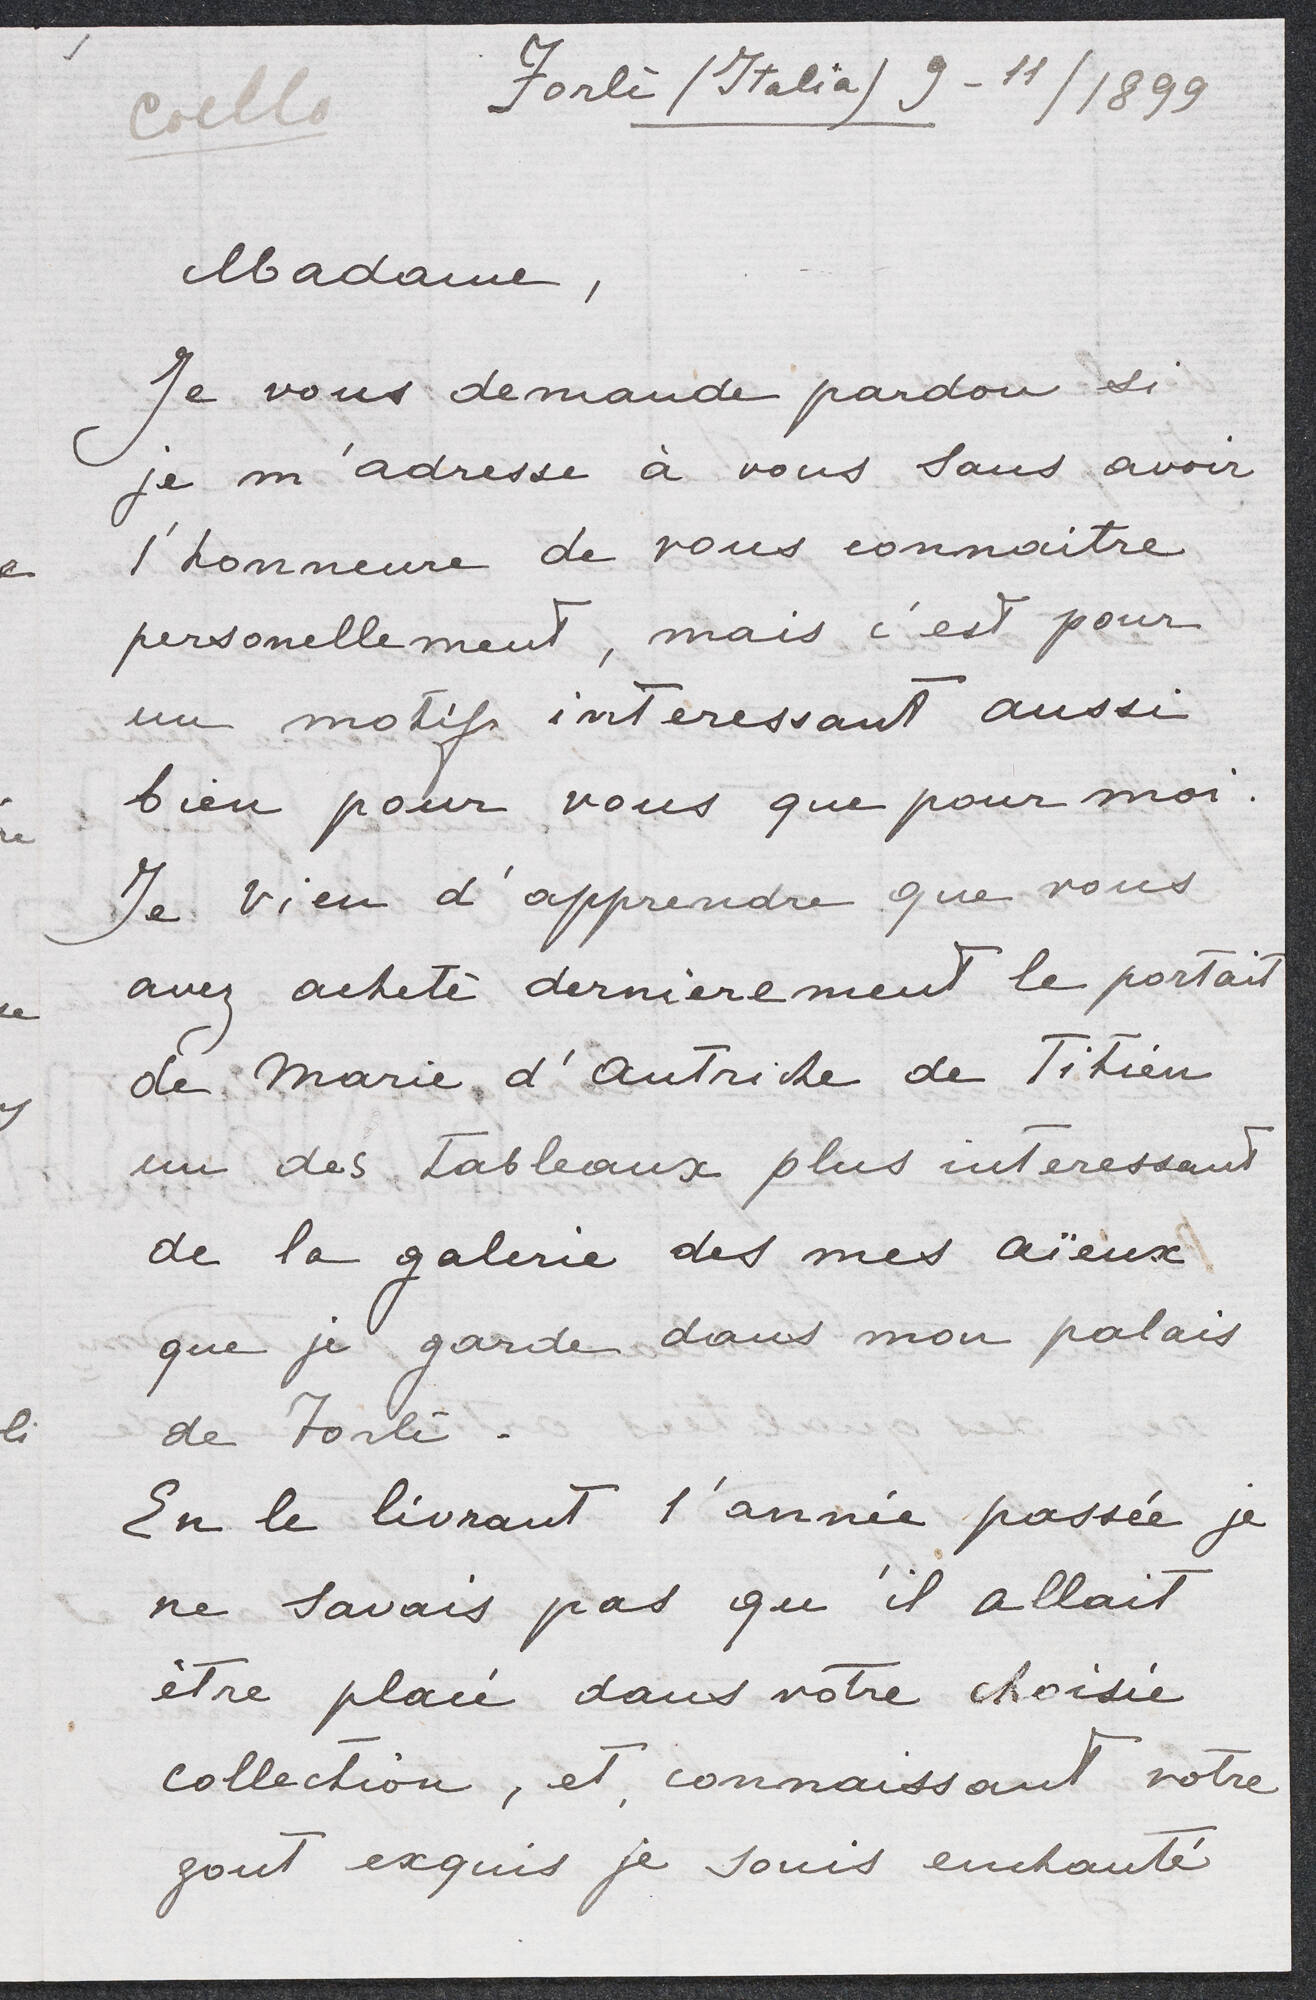 Coello
Forlì (Italia) 9-11/1899
Madame,
Je vous demande pardon si
je m'adresse à vous sans avoir
l'honneure de vous connaitre
personellement, mais c'est pour
un motif interessant aussi
bien pour vous que pour moi.
Je vien d'apprendre que vous
avez acheté dernierement le portait
de Marie d'Autriche de Titien
un des tableaux plus interessant
de la galerie des mes aïeux
que je garde dans mon palais
de Forlì.
En le livrant l'année passée je
ne savais pas qu'il allait
être placé dans votre choisie
collection, et, connaissant votre
gout exquis je souis enchanté